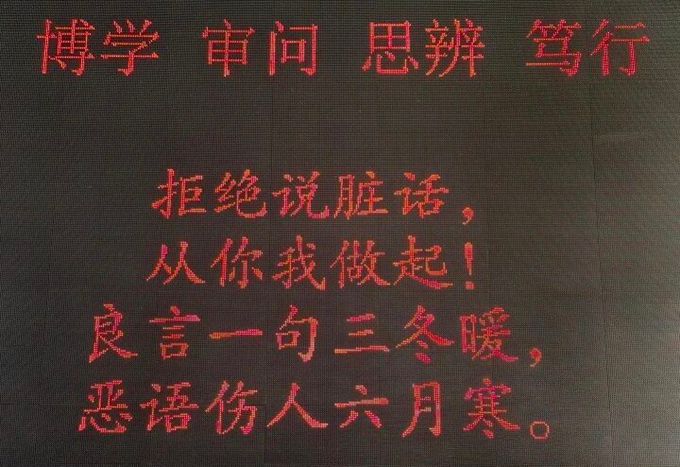 博学 审问 思辨 笃行
拒绝说脏话，
从你我做起！
良言一句三冬暖，
恶语伤人六月寒。